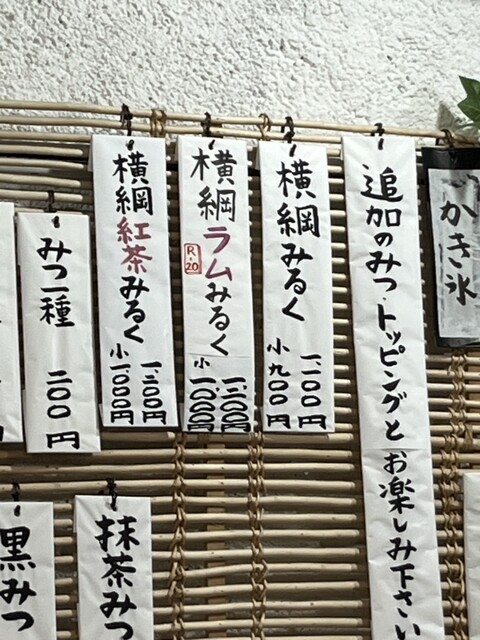 かき氷
追加のみつ・トッピングとお楽しみ下さい
横綱みるく
一一〇〇円
小九〇〇円
横綱ラムみるく
R-20
一、二〇〇円
小一〇〇〇円
横綱紅茶みるく
一、二〇〇円
小一〇〇〇円
みつ一種 二〇〇円
抹茶みつ
黒みつ